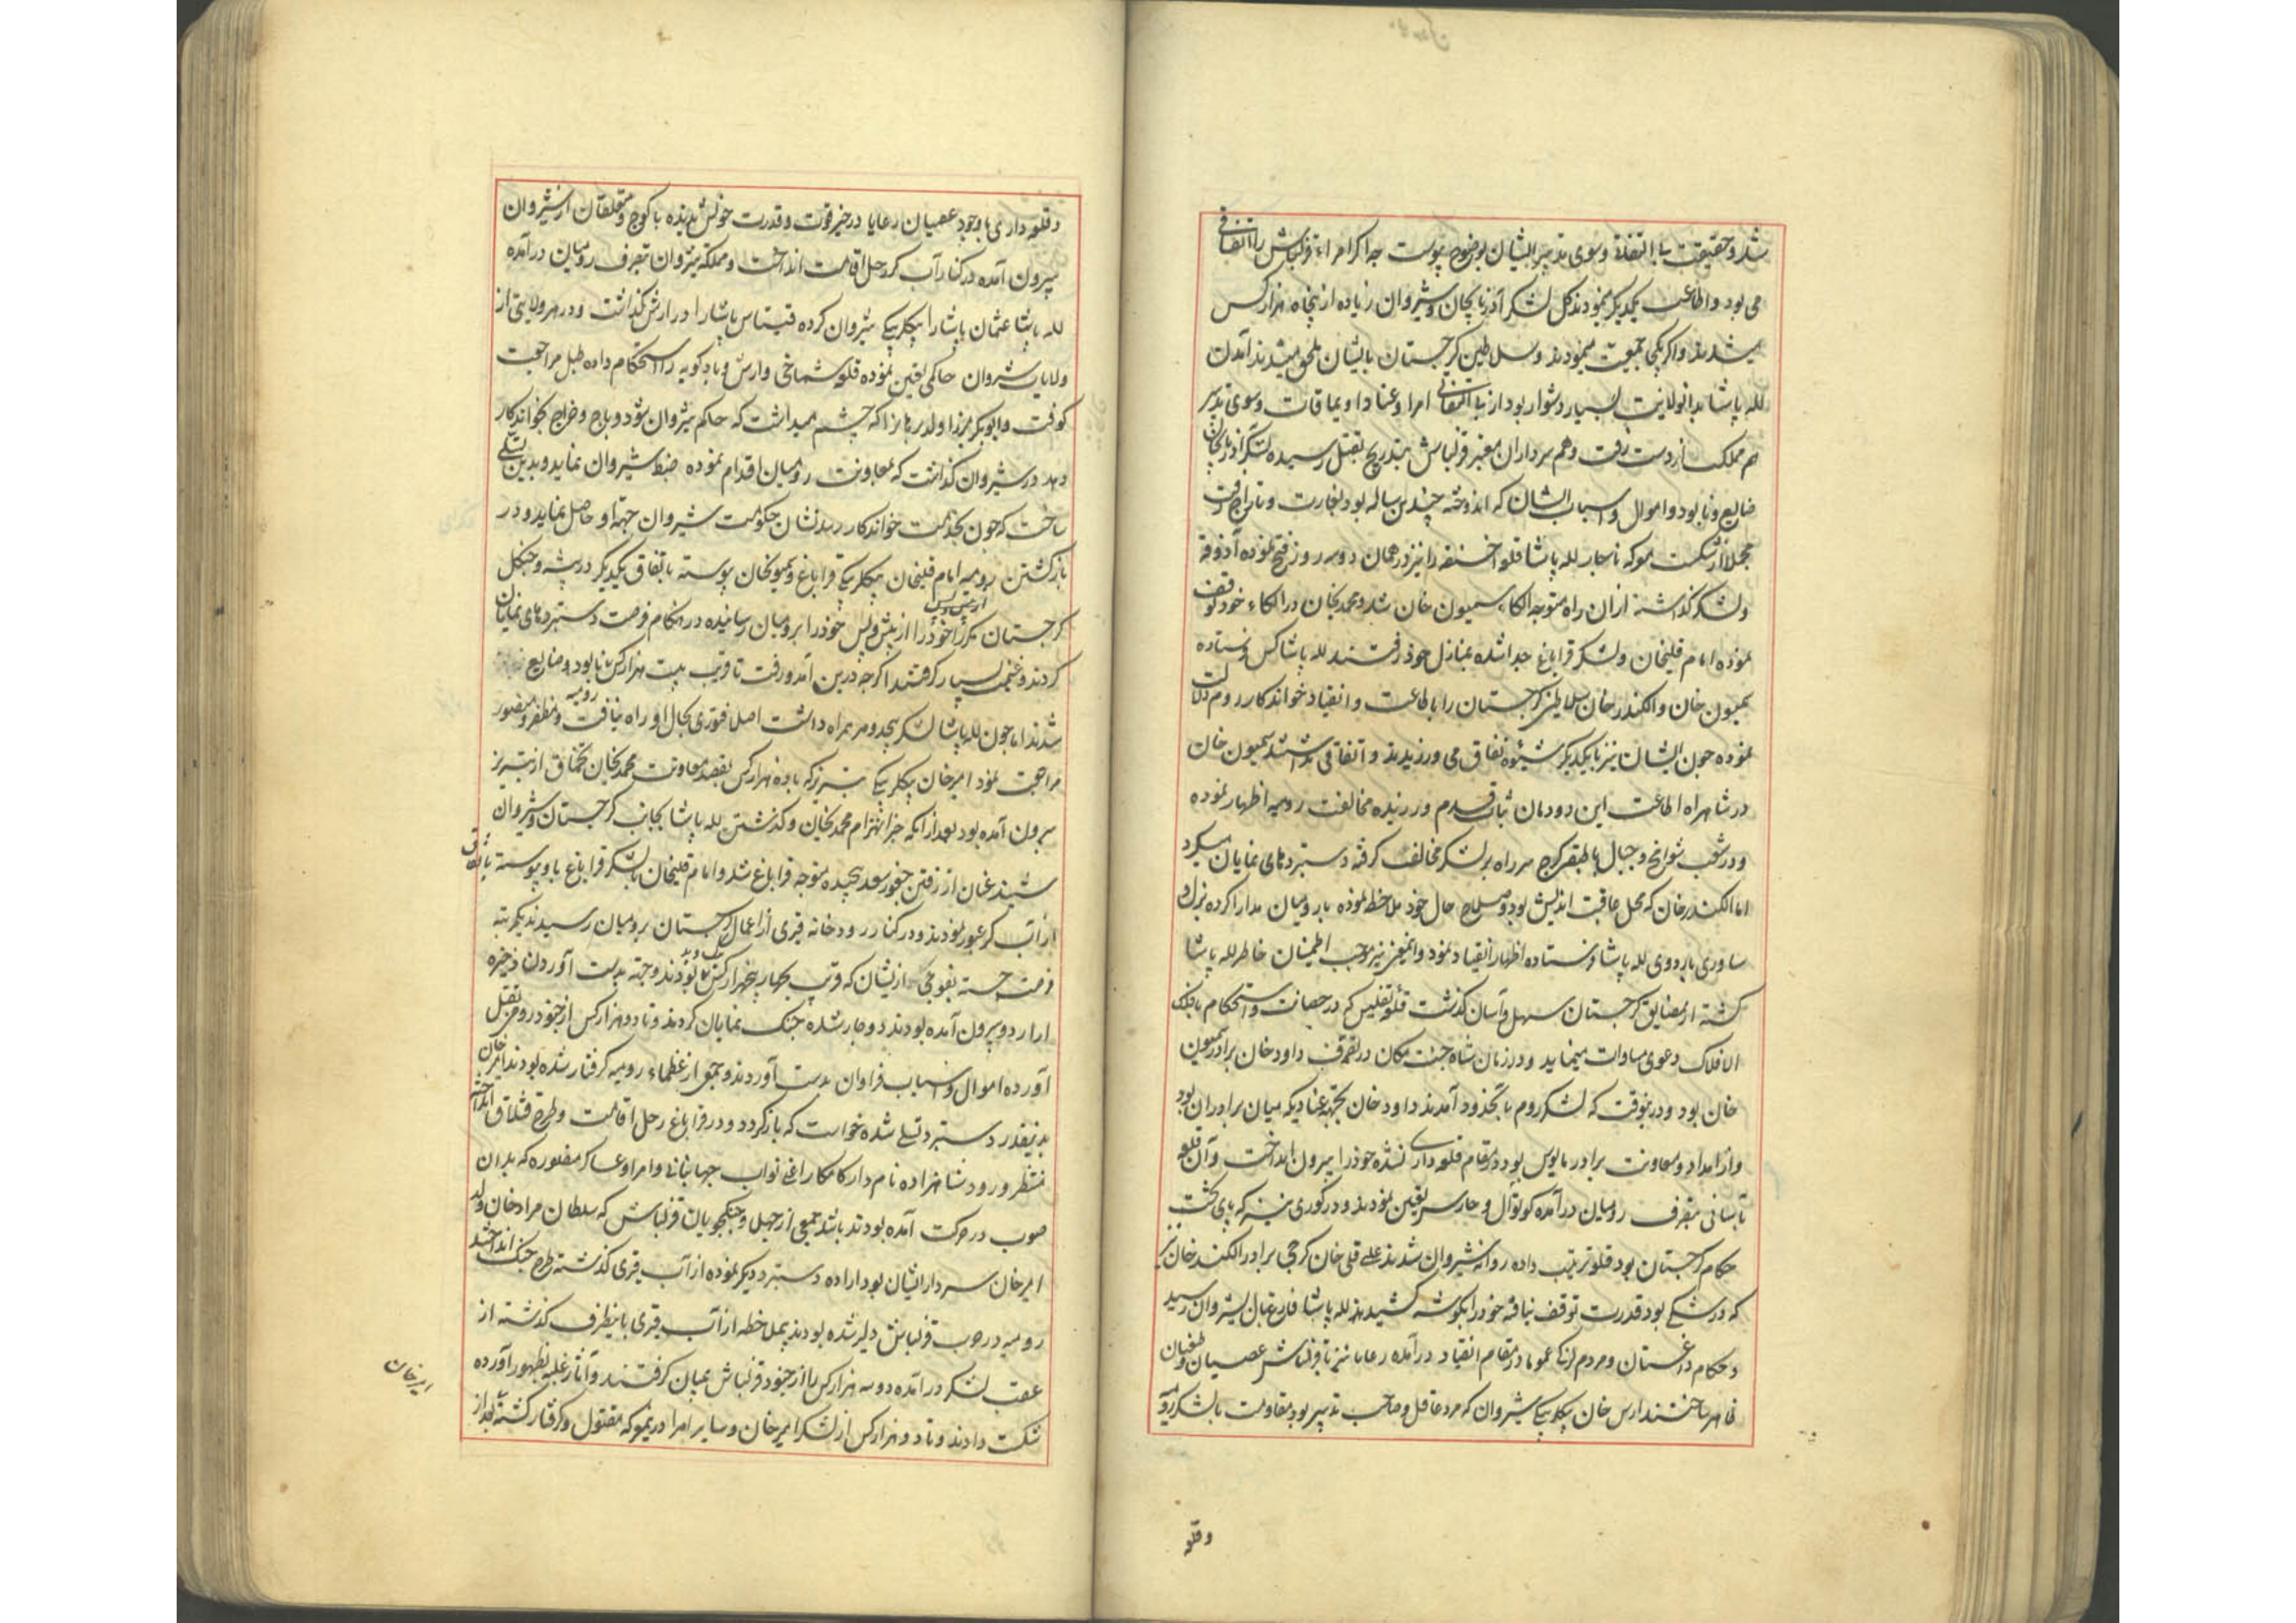 شد و حقیقت بی اتفاقی و سوی تدبیر ایشان بوضوح پیوست چه اگر امراء قزلباش را اتفاقی
می بود و اطاعت یکدیگر مینمودند کل لشکر آذربایجان و شیروان زیاده از پنجاه هزار کس
میشدند و اگر یکجا جمعیت مینمودند و سلاطین گرجستان بایشان ملحق میشدند آمدن
لله پاشا بدانولایت بسیار دشوار بود از بی اتفاقی امرا و عناد اویماقات و سوی تدبیر
هم مملکت از دست رفت و هم سرداران معتبر قزلباش بتدریج بقتل رسیده لشکر آذربایجان
ضایع و نابود و اموال و اسباب ایشان که اندوخته چندین ساله بود بغارت و تاراج رفت
مجملا از شکست معرکه ناچار لله پاشا قلعه اخسقه را نیز در همان دو سه روز فتح نموده آذوقه
و لشکر گذاشته از ان راه متوجه الکاء سمیون خان شد و محمدیخان در الکاء خود توقف
نموده امام قلیخان و لشکر قراباغ جدا شده بمنازل خود رفتند لله پاشا کس فرستاده
سمیون خان و الکندر خان سلاطین گرجستان را باطاعت و انقیاد خواندکار روم دلالت
نموده چون ایشان نیز با یکدیگر شیوه نفاق می ورزیدند و اتفاقی نداشتند سمیون خان
در شاهراه اطاعت این دودمان ثبات قدم ورزیده مخالفت رومیه اظهار نموده
و در شعب شوامخ و جبال با طبقه کرج سر راه بر لشکر مخالف گرفته دستبردهای نمایان میکرد
اما الکندر خان که محل عاقبت اندیش بود و صلاح حال خود ملاحظه نموده با رومیان مدارا کرده نزل و
ساوری باردوی لله پاشا فرستاده اظهار انقیاد نمود و اینمعنی نیز موجب اطمینان خاطر لله پاشا
گشته از مضایق گرجستان سهل و آسان گذشت قلعه تفلیس که در حصانت و استحکام با فلک
الافلاک دعوی مساوات مینماید و در زمان شاه جنت مکان در تصرف داود خان برادر سمیون
خان بود و درینوقت که لشکر روم بانحدود آمدند داود خان بجهة عنادیکه میان برادران بود
و از امداد و معاونت برادر مایوس بود در مقام قلعه داری نشده خود را بیرون انداخت و آن قلعه
بآسانی بتصرف رومیان درآمده کوتوال و حارس تعین نمودند و در کوری نیز که پای تخت
حکام گرجستان بود قلعه ترتیب داده روانه شیروان شدند علی قلی خان گرجی برادر الکندر خان نیز
که در شکی بود قدرت توقف نیافته خود را بگوشه کشیدند لله پاشا فارغبال بشیروان رسید
و حکام داغستان و مردم لزکی عموما در مقام انقیاد درآمده رعایا نیز با قزلباش عصیان و طغیان
ظاهر ساختند ارس خان بیکلربیکی شیروان که مرد عاقل و صاحب تدبیر بود مقاومت با لشکر رومیه
و قلعه
و قلعه داری با وجود عصیان رعایا در حیز قوت و قدرت خویش ندیده با کوچ و متعلقان از شیروان
بیرون آمده در کنار آب کر رحل اقامت انداخت و مملکة شیروان بتصرف رومیان درآمده
لله پاشا عثمان پاشا را بیکلربیکی شیروان کرده قیتاس پاشا را در ارش گذاشت و در هر ولایتی از
ولایات شیروان حاکمی تعین نموده قلعه شماخی و ارش و بادکوبه را استحکام داده طبل مراجعت
کوفت و ابوبکر میرزا ولد برهانرا که چشم میداشت که حاکم شیروان شود و باج و خراج بخواندکار
دهد در شیروان گذاشت که بمعاونت رومیان اقدام نموده ضبط شیروان نماید و بدین تسلی
ساخت که چون بخدمت خواندکار رسد نشان حکومت شیروان جهة او حاصل نماید و در
بازگشتن رومیه امام قلیخان بیکلربیکی قراباغ و سمیونخان پیوسته باتفاق یکدیگر در بیشه و جنگل
گرجستان مکرر خود را از پیش و پس خود را برومیان رسانیده در هنگام فرصت دستبردهای نمایان
کردند و غنیمت بسیار گرفتند اگرچه درین آمد و رفت تا قریب بیست هزار کس نابود و ضایع
شدند اما چون لله پاشا لشکر بیحد و مر همراه داشت اصلا فتوری بحال او راه نیافت و مظفر و منصور
مراجعت نمود امیر خان بیکلربیکی تبریز که با ده هزار کس بقصد معاونت محمدیخان تخماق از تبریز
بیرون آمده بود بعد از انکه خبر انهزام محمدیخان و گذشتن لله پاشا بجانب گرجستان و شیروان
شنید عنان از رفتن چخورسعد پیچیده متوجه قراباغ شد و امام قلیخان با لشکر قراباغ باو پیوسته باتفاق
از آب کر عبور نمودند و در کنار رودخانه قبری از اعمال گرجستان برومیان رسیدند یکمرتبه
فرصت جسته بفوجی از ایشان که قریب بچهار پنجهزار کس بودند و جهة بدست آوردن ذخیره
از اردو بیرون آمده بودند دوچار شده جنگ نمایان کردند و تا دو هزار کس از جنود روم بقتل
آورده اموال و اسباب فراوان بدست آوردند و جمعی از عظماء رومیه گرفتار شده بودند امیر خان
بدینقدر دستبرد تسلی شده خواست که بازگردد و در قراباغ رحل اقامت و طرح قشلاق انداخته
منتظر ورود شاهزاده نامدار کامکار اعنی نواب جهانبانی و امرا و عساکر منصوره که بدان
صوب در حرکت آمده بودند باشد جمعی از جهلا و جنگجویان قزلباش که سلطان مراد خان ولد
امیر خان سردار ایشان بود اراده دستبرد دیگر نموده از آب قبری گذشته طرح جنگ انداختند
رومیه در حرب قزلباش دلیر شده بودند بیملاحظه از آب قبری باینطرف گذشته از
عقب لشکر درآمده دو سه هزار کس را از جنود قزلباش بمیان گرفتند و آثار غلبه بظهور آورده
شکست دادند و تا دو هزار کس از لشکر امیر خان و سایر امرا درینمعرکه مقتول و گرفتار گشته بعد از
امیر خان